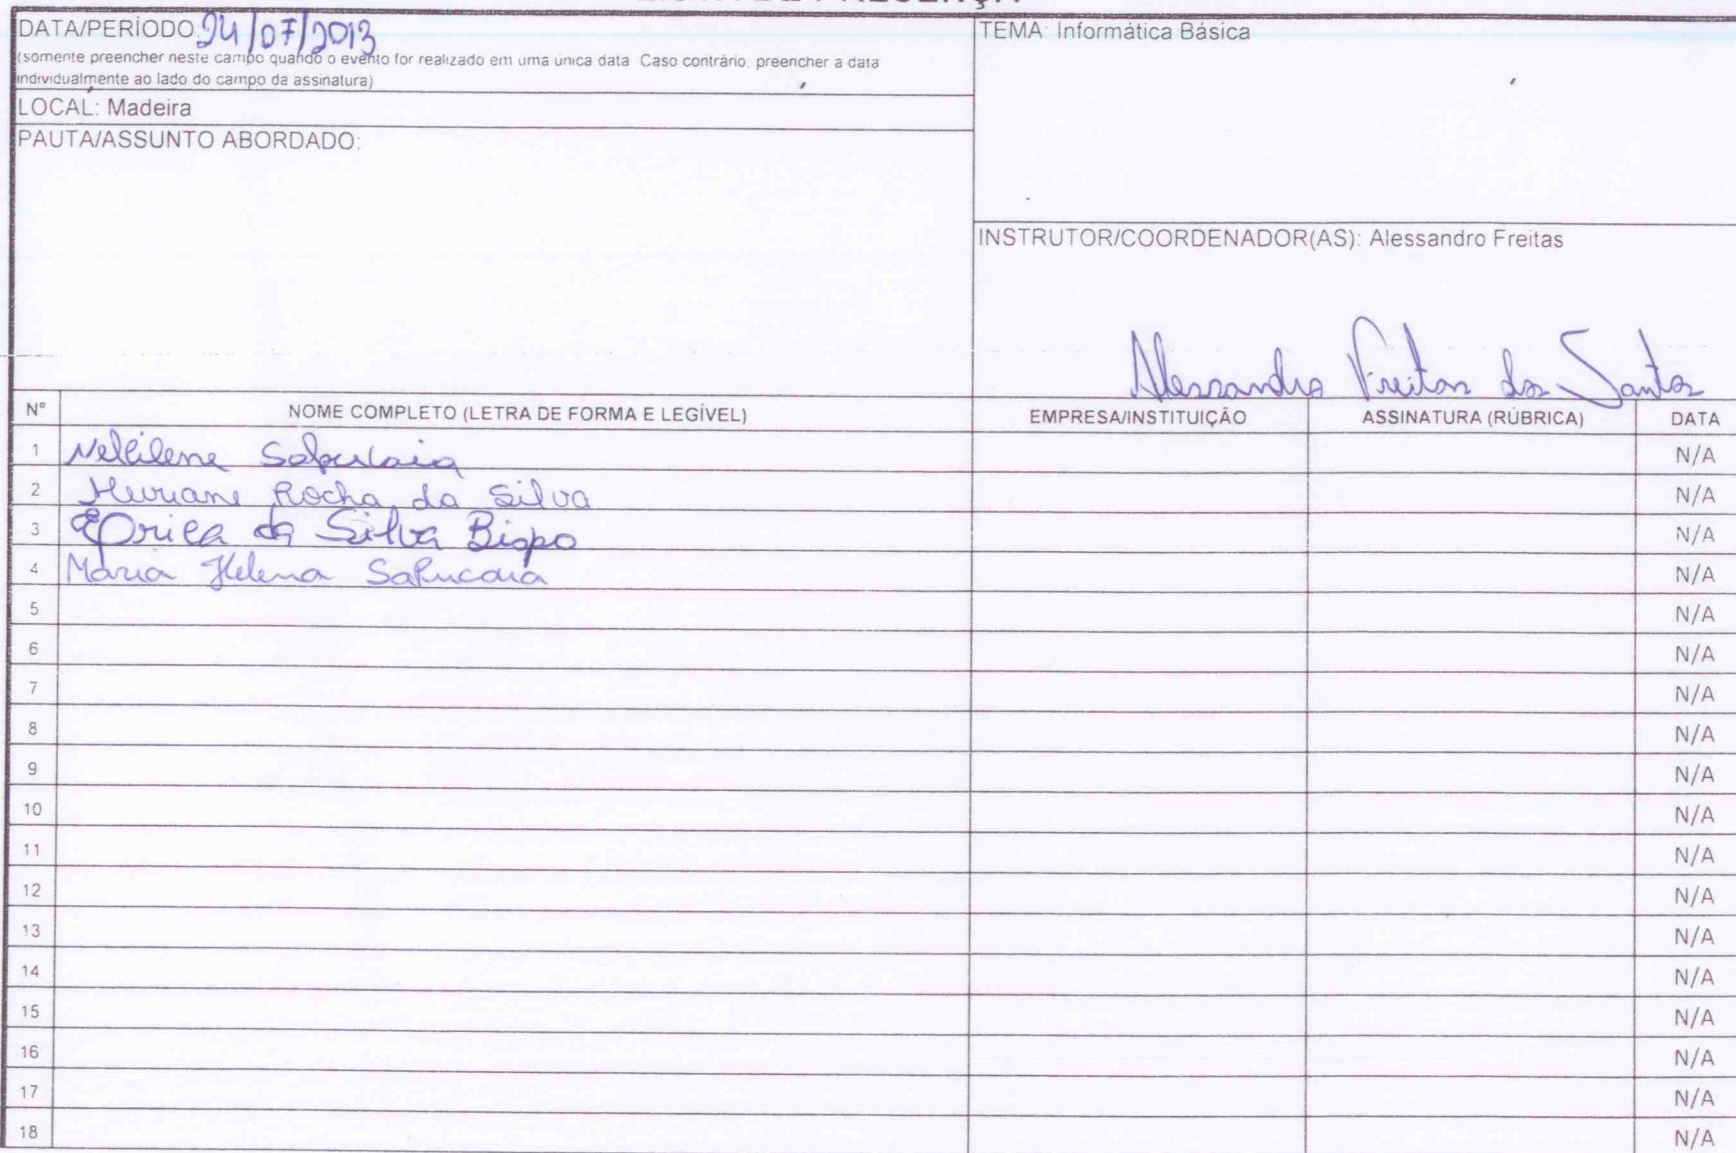 DATA/PERÍODO: 24/07/2013
(somente preencher neste campo quando o evento for realizado em uma única data. Caso contrário, preencher a data
individualmente ao lado do campo da assinatura)
LOCAL: Madeira
PAUTA/ASSUNTO ABORDADO:
TEMA: Informática Básica
INSTRUTOR/COORDENADOR(AS): Alessandro Freitas
Alessandro Freitas dos Santos
N° NOME COMPLETO (LETRA DE FORMA E LEGÍVEL) EMPRESA/INSTITUIÇÃO ASSINATURA (RÚBRICA) DATA
1 N/A
2 Rocha da Silva N/A
3 da Silva Bispo N/A
4 Maria Helena Sapucaia N/A
5 N/A
6 N/A
7 N/A
8 N/A
9 N/A
10 N/A
11 N/A
12 N/A
13 N/A
14 N/A
15 N/A
16 N/A
17 N/A
18 N/A